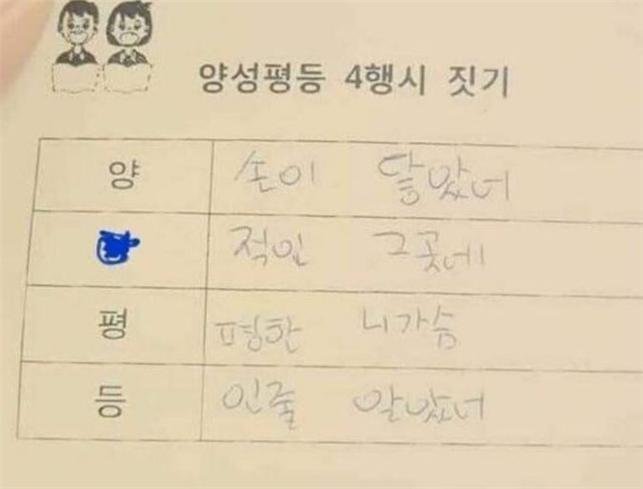 양성평등 4행시 짓기
양 손이 닿았네
적인 그곳에
평 평한 니가슴
등 인줄 알았네